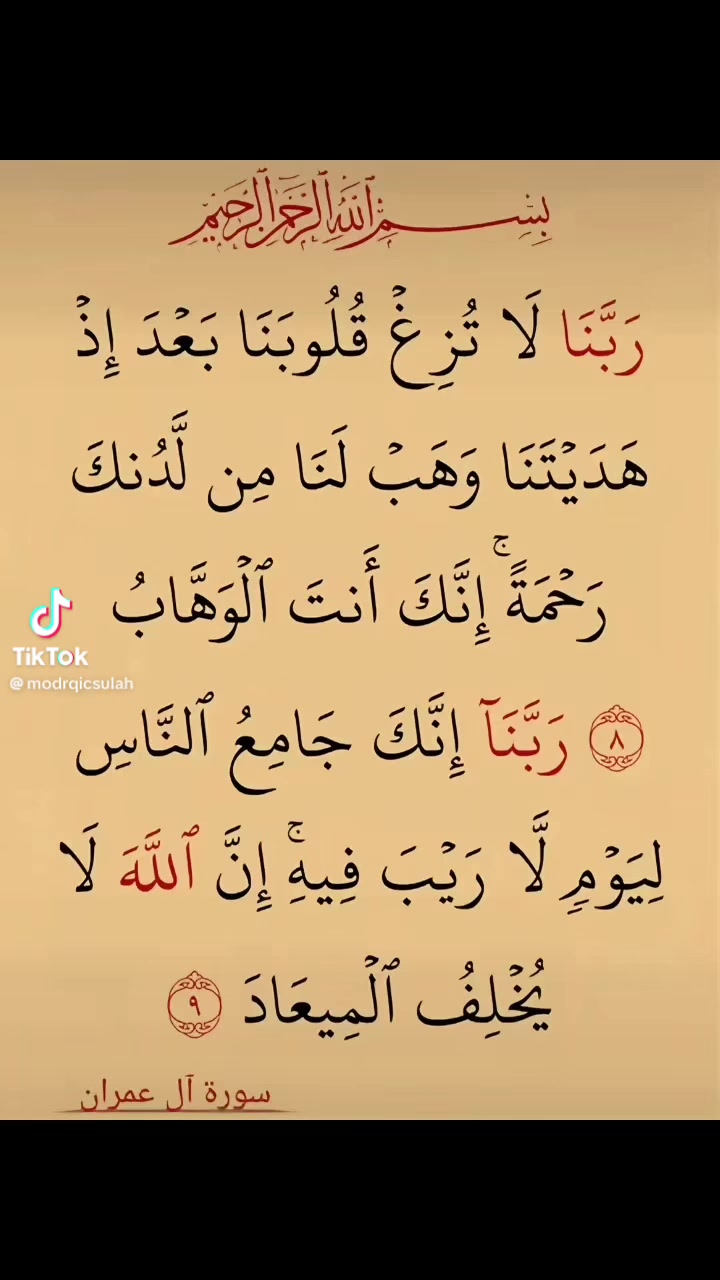 بِسْمِ ٱللَّهِ ٱلرَّحْمَٰنِ ٱلرَّحِيمِ
رَبَّنَا لَا تُزِغْ قُلُوبَنَا بَعْدَ إِذْ
هَدَيْتَنَا وَهَبْ لَنَا مِن لَّدُنكَ
رَحْمَةً ۚ إِنَّكَ أَنتَ ٱلْوَهَّابُ
٨ رَبَّنَآ إِنَّكَ جَامِعُ ٱلنَّاسِ
لِيَوْمٍ لَّا رَيْبَ فِيهِ ۚ إِنَّ ٱللَّهَ لَا
يُخْلِفُ ٱلْمِيعَادَ ٩
سورة آل عمران
TikTok
@modrqicsulah